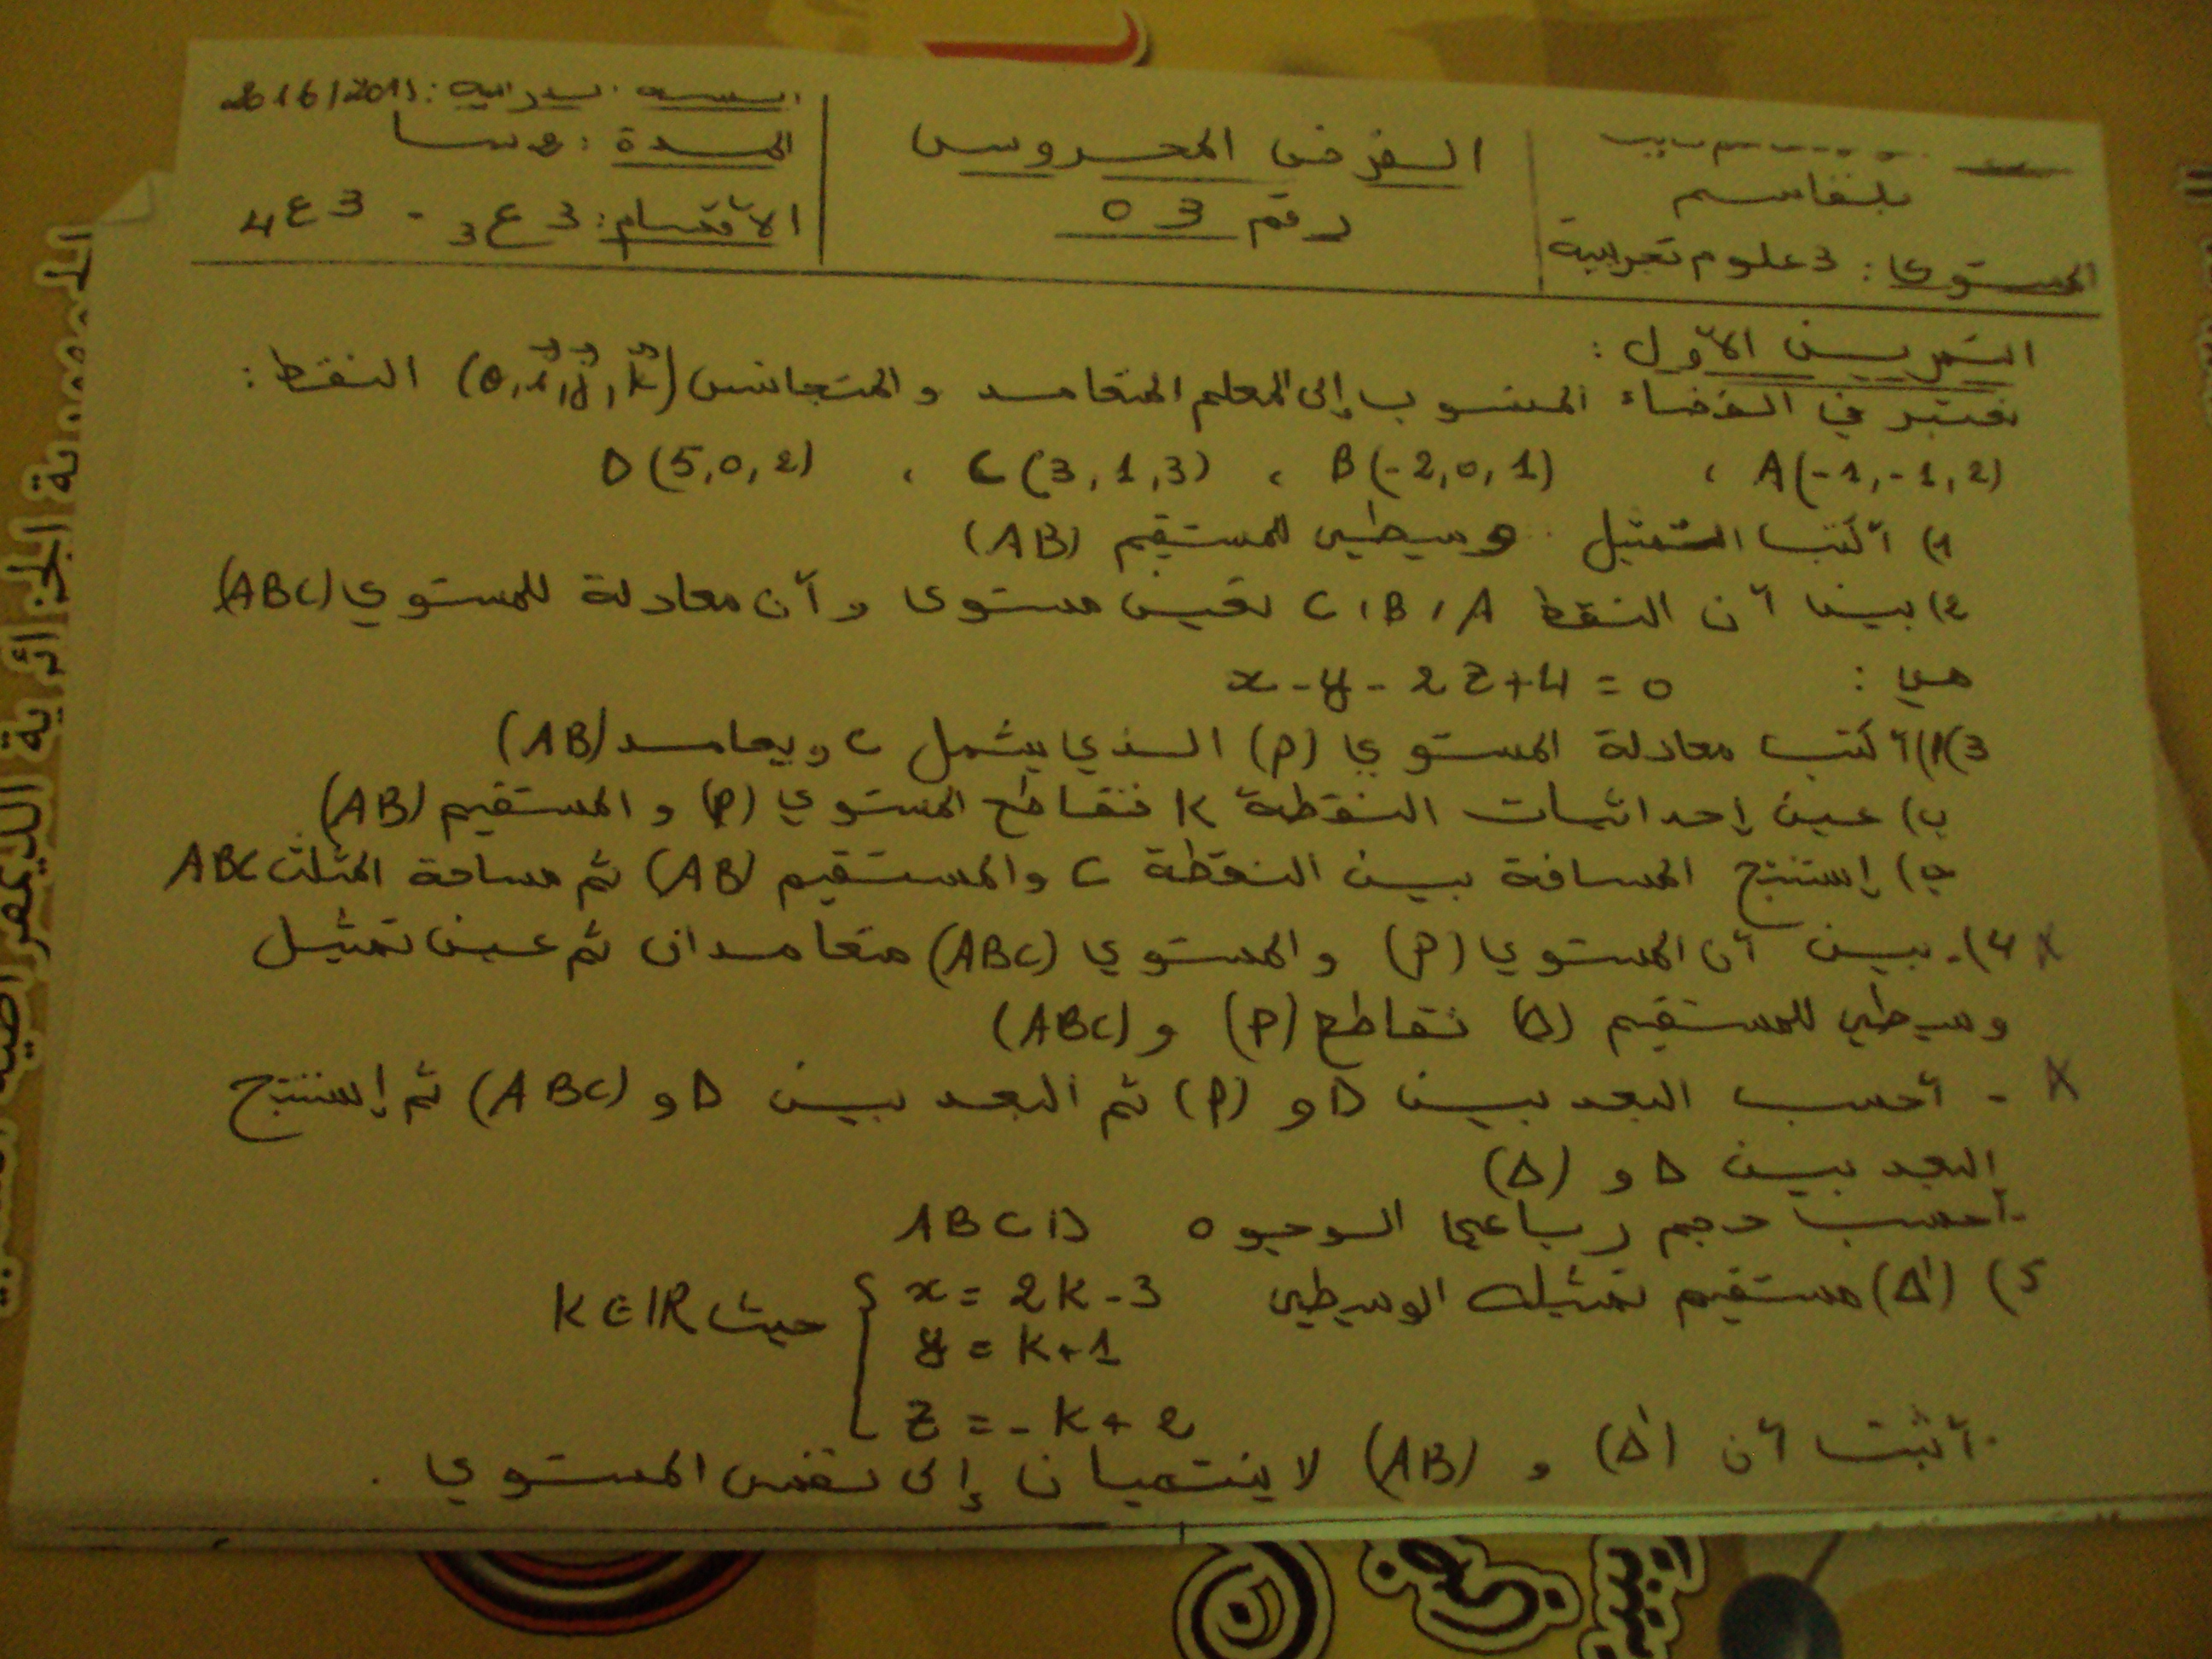 بلقاسم
المستوى: 3 علوم تجريبية
الفرض المحروس
رقم 03
السنة الدراسية:
المدة: 2 سا
الأقسام: 3ع3 - 3ع4
التمرين الأول:
نعتبر في الفضاء المنسوب إلى المعلم المتعامد والمتجانس (O, i, j, k) النقط:
A(-1,-1,2) ، B(-2,0,1) ، C(3,1,3) ، D(5,0,2)
1) أكتب التمثيل وسيطي للمستقيم (AB)
2) بين أن النقط A, B, C تعين مستوى وأن معادلة للمستوي (ABC)
هي: x - y - 2z + 4 = 0
3) أ) أكتب معادلة المستوي (P) الذي يشمل C ويعامد (AB)
ب) عين إحداثيات النقطة K تقاطع المستوي (P) و المستقيم (AB)
ج) إستنتج المسافة بين النقطة C والمستقيم (AB) ثم مساحة المثلث ABC
4) - بين أن المستوي (P) و المستوي (ABC) متعامدان ثم عين تمثيل
وسيطي للمستقيم (Δ) تقاطع (P) و (ABC)
- أحسب البعد بين D و (P) ثم البعد بين D و (ABC) ثم إستنتج
البعد بين D و (Δ)
- أحسب حجم رباعي الوجوه ABCD
5) (Δ') مستقيم تمثيله الوسيطي
x = 2k - 3
y = k + 1
z = -k + 2
حيث k∈IR
. أثبت أن (Δ') و (AB) لا ينتميان إلى نفس المستوي .
الجزائرية